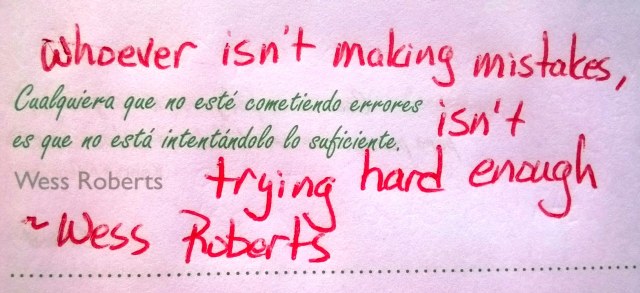 whoever isn't making mistakes,
Cualquiera que no esté cometiendo errores
isn't
es que no está intentándolo lo suficiente.
trying hard enough
Wess Roberts
~Wess Roberts